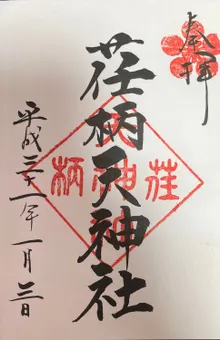 奉拝
荏柄天神社
荏柄天神
平成三十一年一月三日